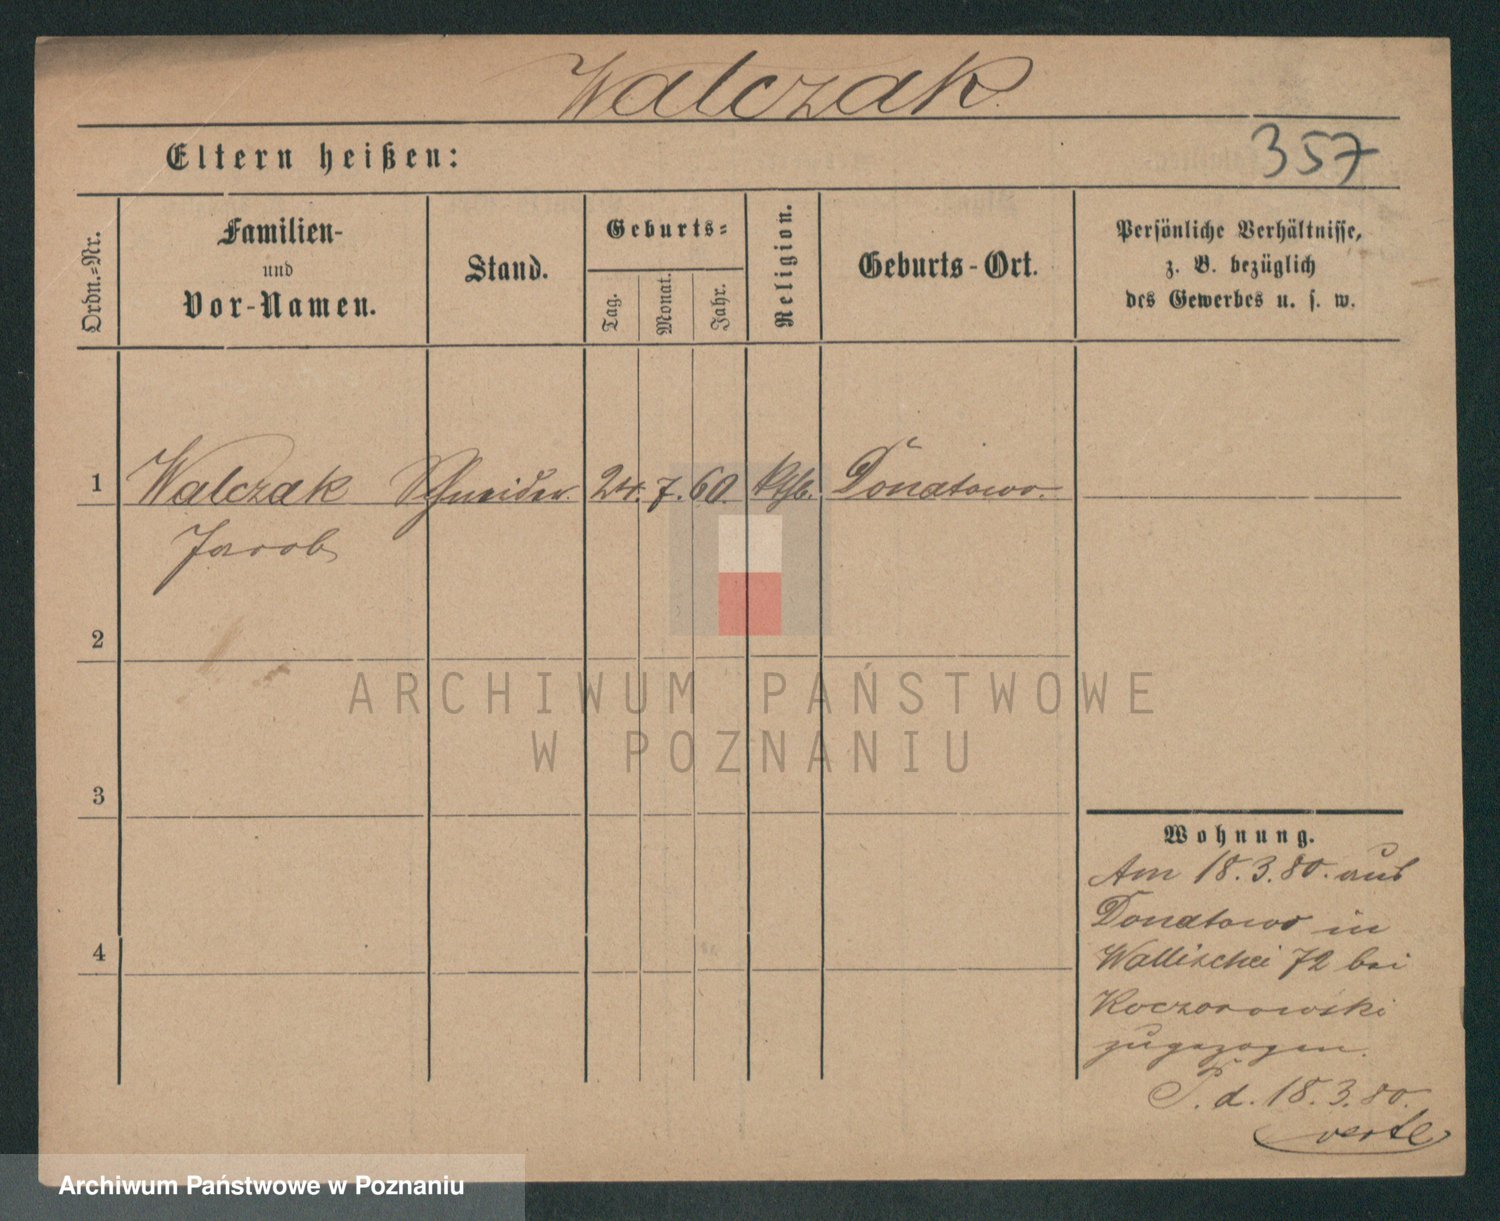 Walczak
357
Eltern heißen:
Ordn.=Nr.
Familien-
und
Vor-Namen.
Stand.
Geburts=
Tag.
Monat.
Jahr.
Religion.
Geburts-Ort.
Persönliche Verhältnisse,
z. B. bezüglich
des Gewerbes u. s. w.
1 Walczak Schneider. 24. 7. 60. kth. Donatowo.
Jacob
2
3
4
Wohnung.
Am 18.3.80. aus
Donatowo in
Wallischei 72 bei
Koczorowski
zugezogen.
P. d. 18.3.80.
verte
ARCHIWUM PAŃSTWOWE
W POZNANIU
Archiwum Państwowe w Poznaniu